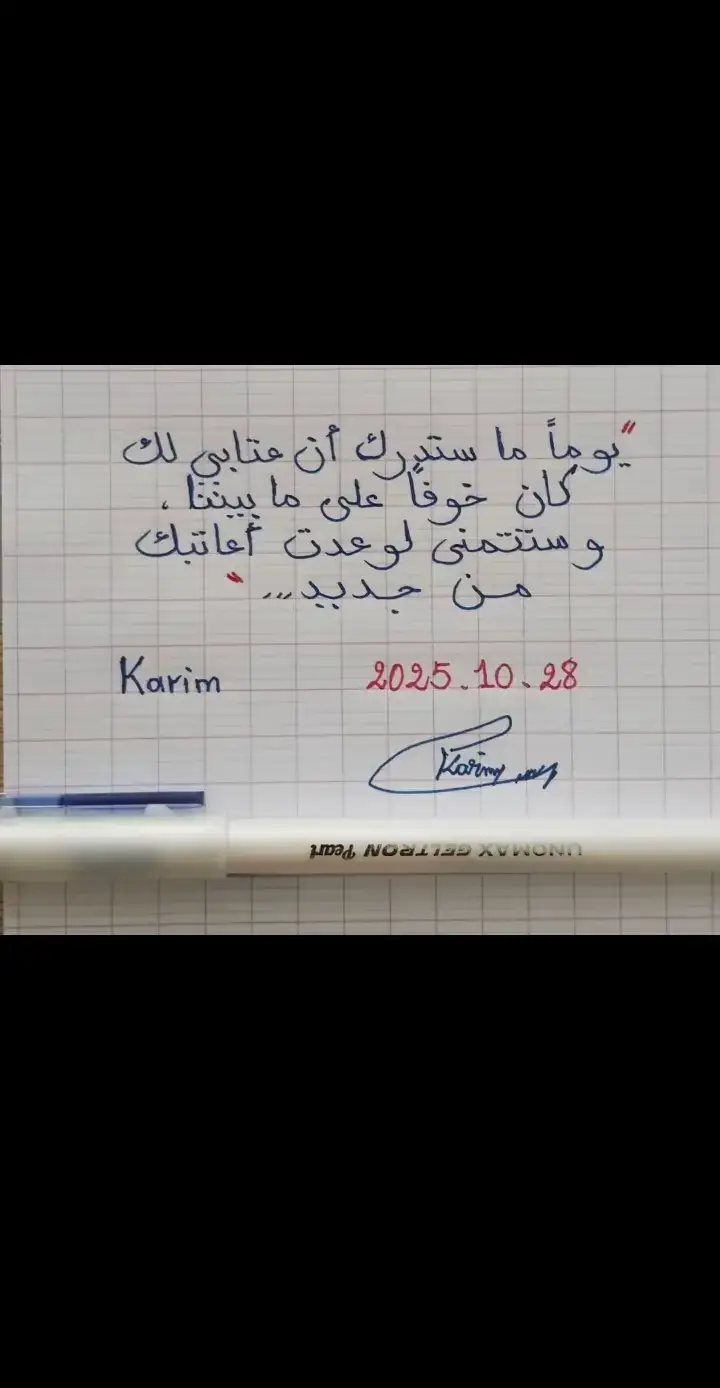 "يوماً ما ستدرك أن عتابي لك
كان خوفاً على ما بيننا ،
وستتمنى لو عدت أعاتبك
من جديد ... "
Karim 2025.10.28
Karim
UNOMAX GELTRON Pearl